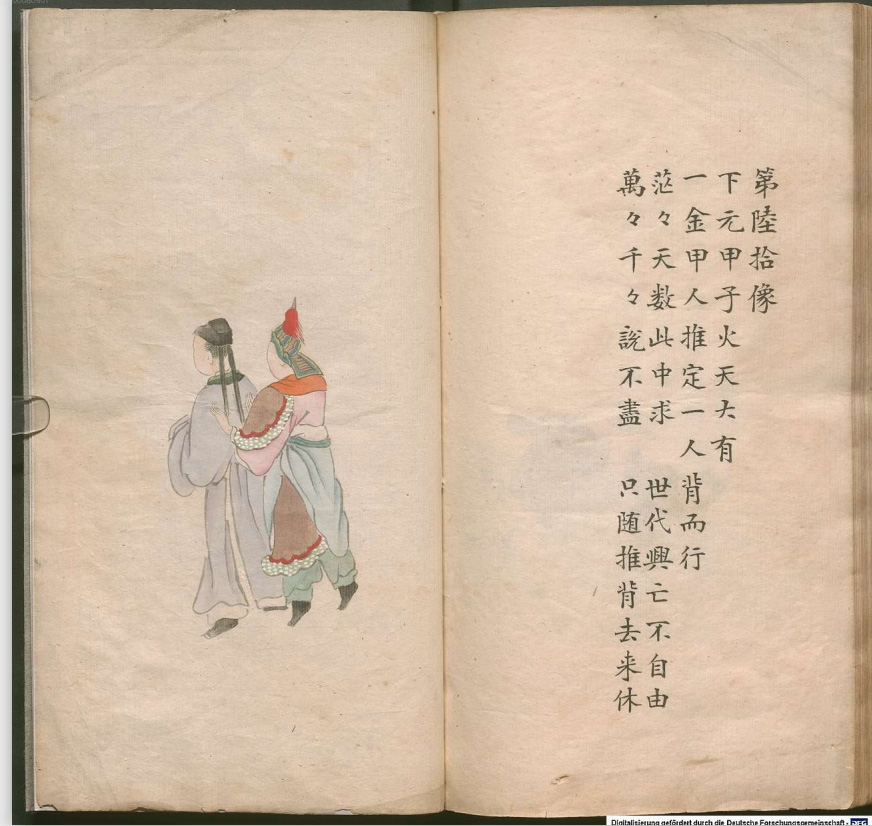 第陸拾像
下元甲子火天大有
一金甲人推定一人背而行
茫々天数此中求 世代興亡不自由
萬々千々說不盡 只随推背去来休
Digitalisierung gefördert durch die Deutsche Forschungsgemeinschaft - DFG